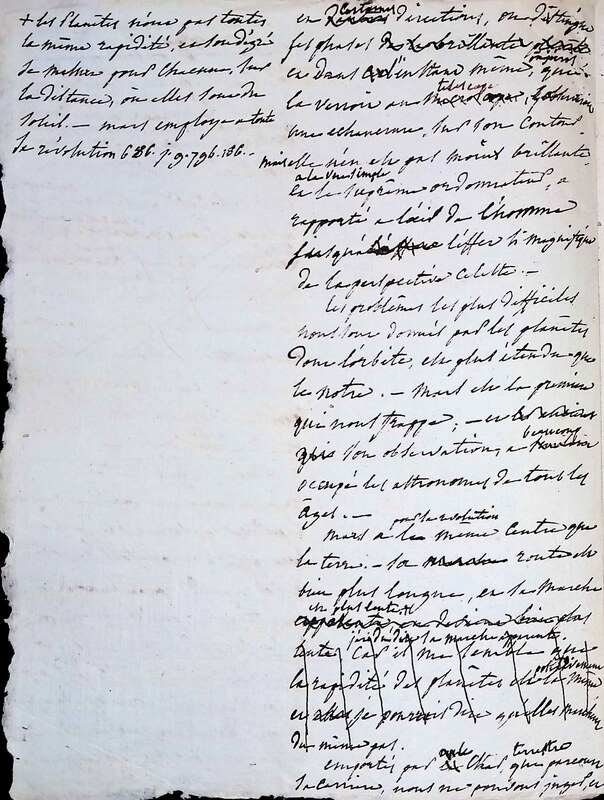 + les planètes n'ont pas toutes
la même rapidité, et son degré
se mesure pour chacune, sur
la distance, où elles sont du
soleil. — mars employe a toute
sa revolution 686. j. 9. 796. 186. —
certaines
en directions, on distingue
ses phases brillante
et dans l'instant même, que
telescope
la verroit au
une echancrure, sur son contour
mais elle n'en est pas moins brillante
a la vue simple
et le suprême ordonnateur, a
rapporté a l'œil de l'homme
jusqu'à l'effet si magnifique
de la perspective celeste. —
les problêmes les plus difficiles
nous sont donnés par les planètes
dont l'orbite, est plus étendu que
le notre. — mars est la premiere
qui nous frappe; — et
beaucoup
son observation, a
occupé les astronomes de tous les
âges. —
pour sa revolution
mars a le même centre que
la terre. — sa route est
bien plus longue, et sa marche
est plus lente +
plus
je veux dire la marche apparente.
lente car il me semble que
positivement
la rapidité des planètes est la même
et je pourrois dire qu'elles marchent
du même pas.
terrestre
emportés par le char, que parcourt
sa carriere, nous ne pouvons juger, et